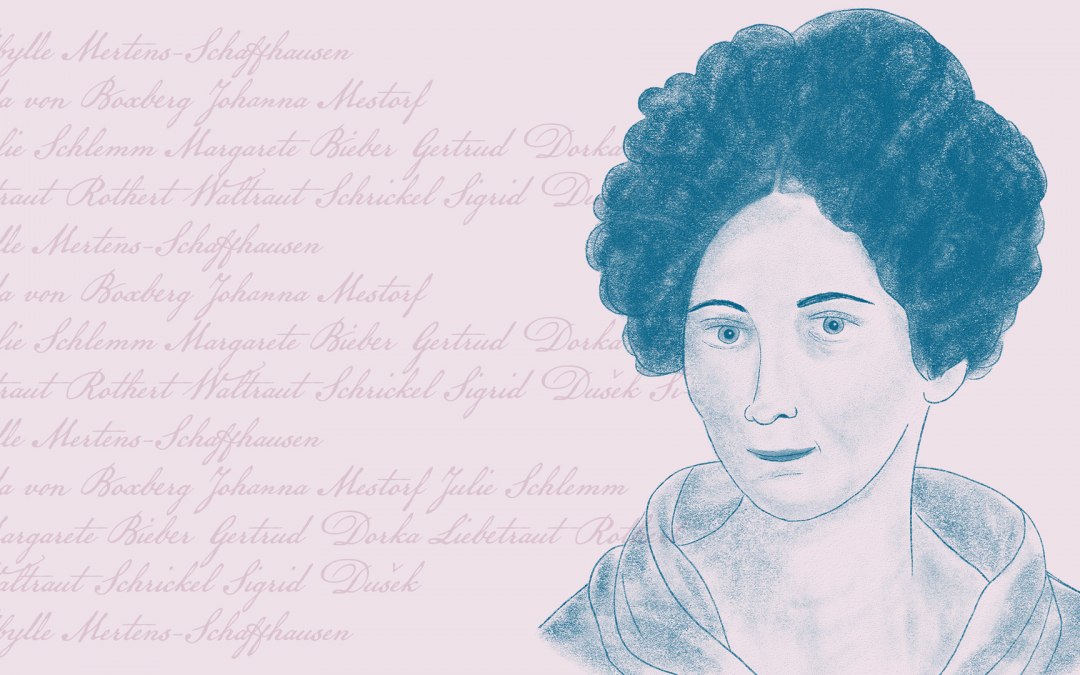 bylle Mertens-Schaffhausen
da von Boxberg Johanna Mestorf
lie Schlemm Margarete Bieber Gertrud Dorka
traut Rothert Waltraut Schrickel Sigrid Du
lle Mertens-Schaffhausen
da von Boxberg Johanna Mestorf
lie Schlemm Margarete Bieber Gertrud Dorka
traut Rothert Waltraut Schrickel Sigrid Dušek Si-
lle Mertens-Schaffhausen
da von Boxberg Johanna Mestorf Julie Schlemm
argarete Bieber Gertrud Dorka Liebetraut Rot
altraut Schrickel Sigrid Dušek
bylle Mertens-Schaffhausen